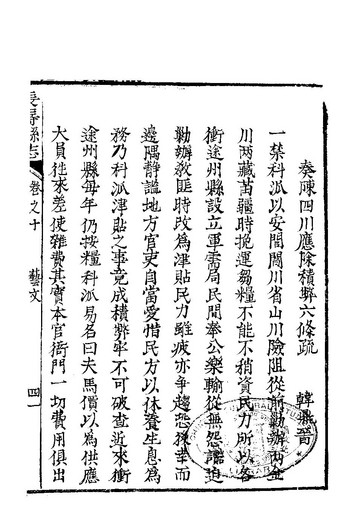 奏陳四川應除積弊六條疏
韓鼎晉
一禁科派以安閭閻川省山川險阻從前勦辦兩金
川兩藏苗疆時挽運芻糧不能不稍資民力所以各
衝途州縣設立軍需局民間奉公樂輸從無怨讟迨
勦辦教匪時改為津貼民力雖疲亦爭趨恐後幸而
邊隅靜謐地方官吏自當愛惜民方以休養生息為
務乃科派津貼之事竟成積弊牢不可破查近來衝
途州縣每年仍按糧科派易名曰夫馬價以為供應
大員徃來差使雜費其實本官衙門一切費用俱出
長壽縣志
卷之十
藝文
四